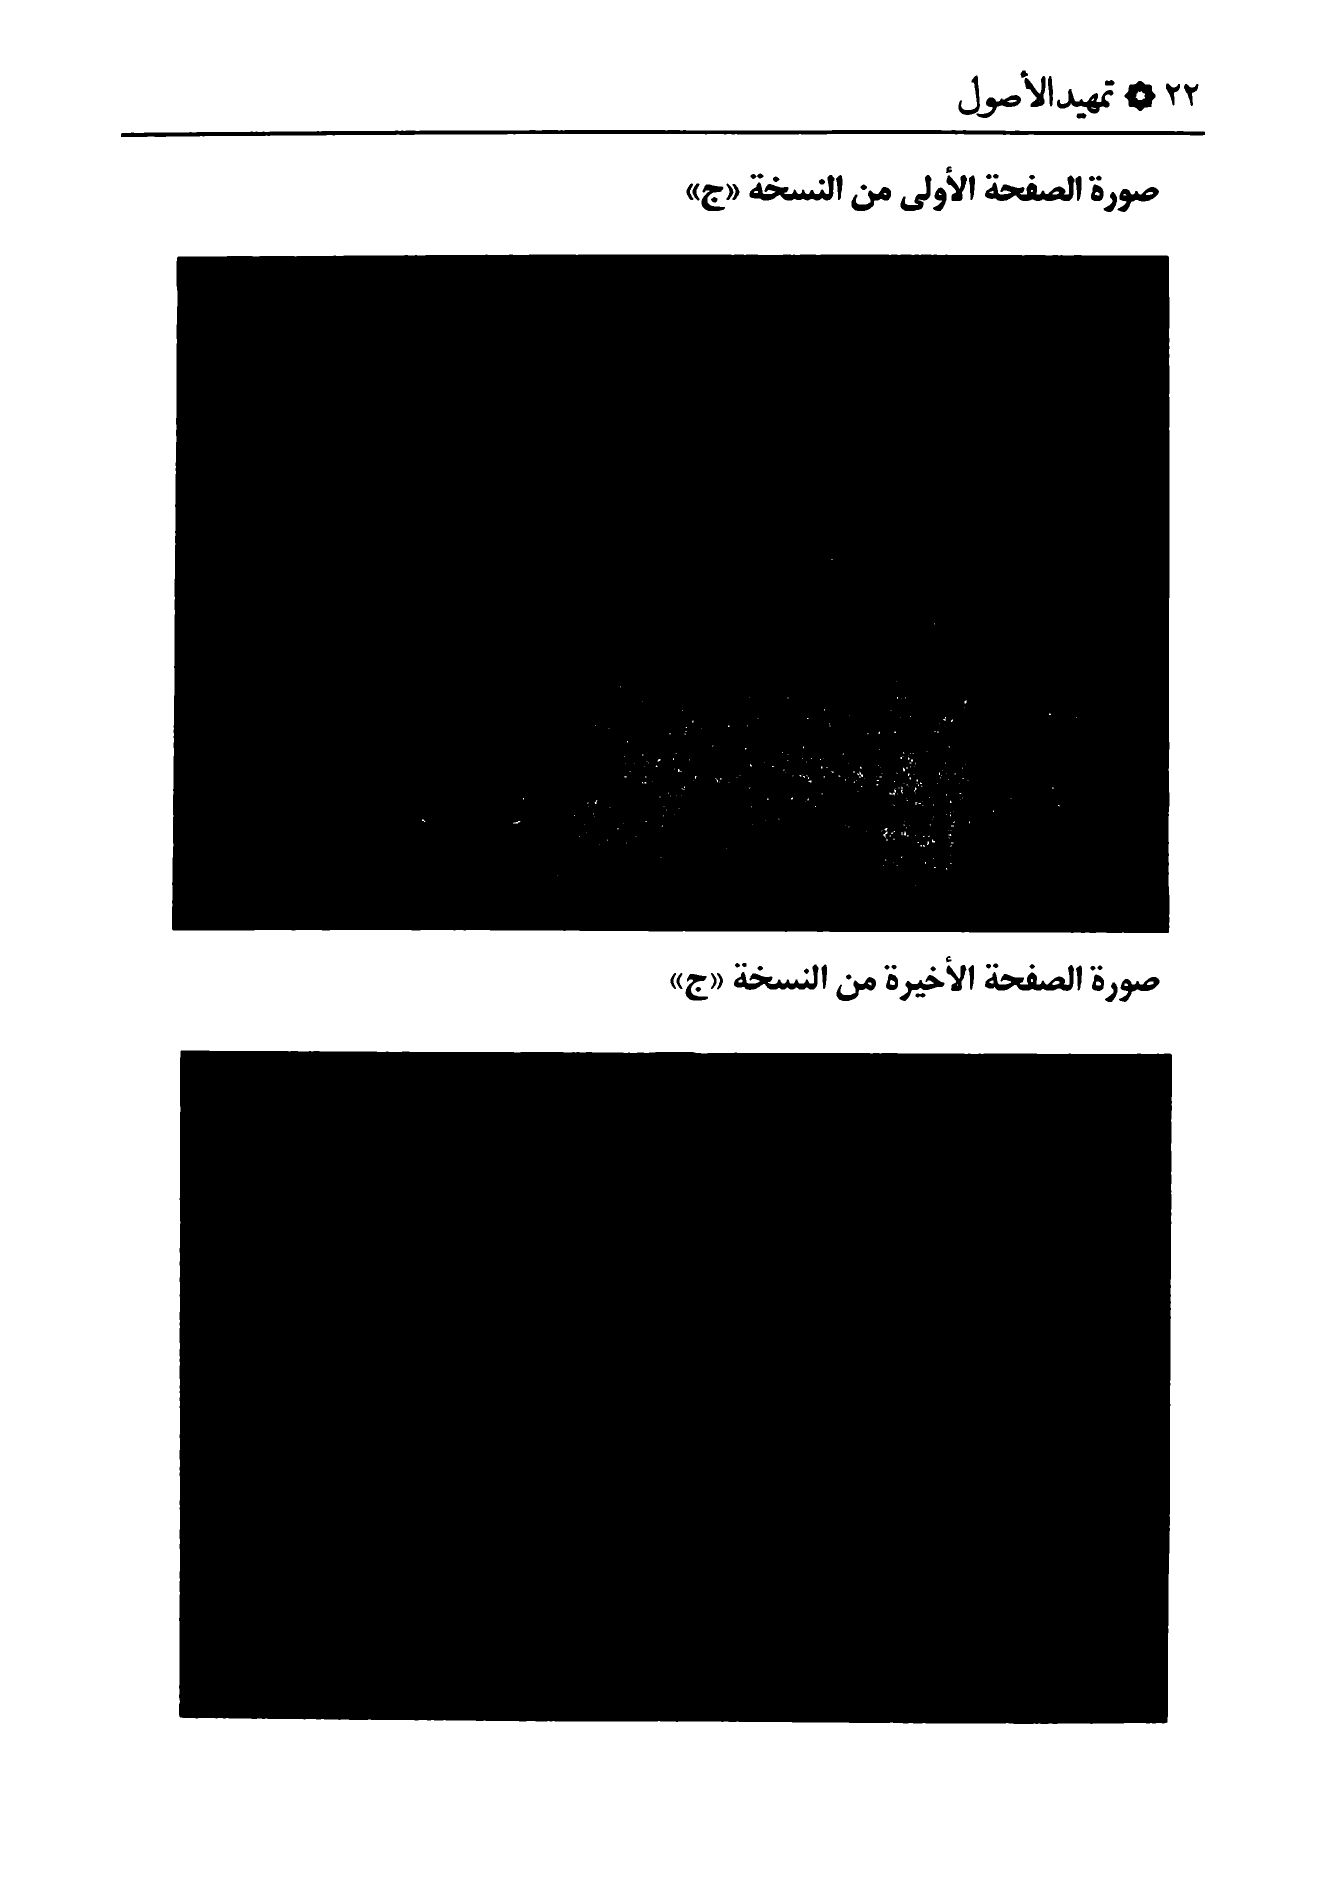 ٢٢ ۞ تمهيد الأصول
صورة الصفحة الأولى من النسخة «ج»
صورة الصفحة الأخيرة من النسخة «ج»